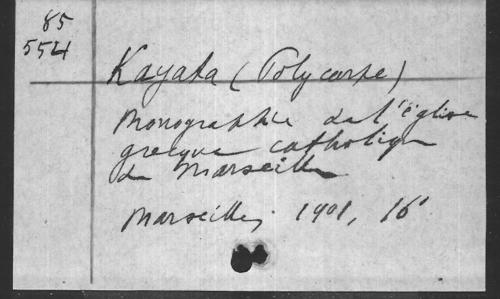 85
554
Kayata (Polycarpe)
Monographie de l'église
grecque catholique
de Marseille
Marseille, 1901, 16°